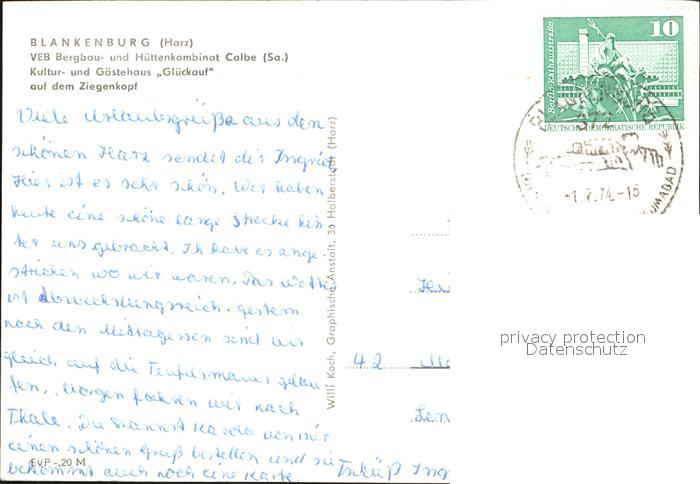 BLANKENBURG (Harz)
VEB Bergbau- und Hüttenkombinat Calbe (Sa.)
Kultur- und Gästehaus „Glückauf"
auf dem Ziegenkopf
Viele Urlaubsgrüße aus dem
schönen Harz sendet dir Ingrid
Hier ist es sehr schön. Wir haben
heute eine schöne lange Strecke hin
ter uns gebracht. Ich habe es ange-
strichen wo wir waren. Das Wetter
ist Abwechslungsreich. gestern
nach den Mittagessen sind wir
gleich auf die Teufelsmauer gelau-
fen. Morgen fahren wir nach
Thale. Du kannst von mir
einen schönen Gruß bestellen und sie
bekommt auch noch eine Karte. Tschüß Ing
EVP -,20 M
Willi Koch, Graphische Anstalt, 36 Halberstadt (Harz)
10
Berlin, Rathausstraße
DEUTSCHE DEMOKRATISCHE REPUBLIK
BLANKENBURG
372
-1.7.74.-15
42
privacy protection
Datenschutz